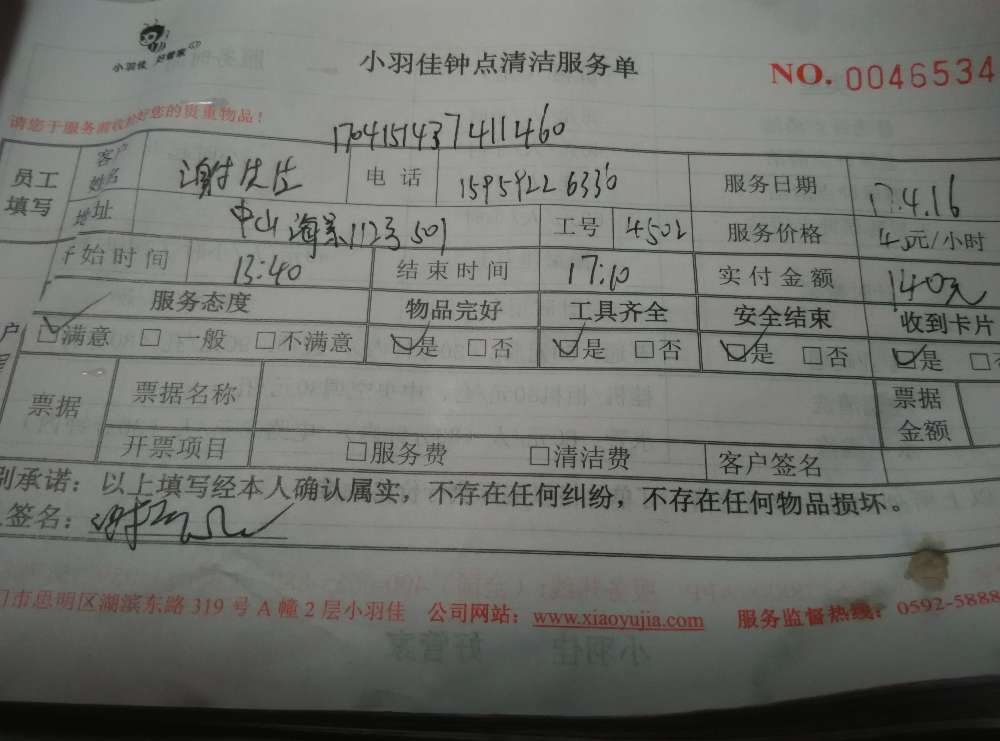 小羽佳 好管家
小羽佳钟点清洁服务单
NO. 0046534
请您于服务前收拾好您的贵重物品！
1704151437411460
员工填写 客户姓名 谢先生 电话 15959226330 服务日期 17.4.16
地址 中山海景1123 501 工号 4502 服务价格 40元/小时
开始时间 13:40 结束时间 17:10 实付金额 140元
服务态度 物品完好 工具齐全 安全结束 收到卡片
☑满意 □一般 □不满意 ☑是 □否 ☑是 □否 ☑是 □否 ☑是 □
票据 票据名称 票据金额
开票项目 □服务费 □清洁费 客户签名
别承诺：以上填写经本人确认属实，不存在任何纠纷，不存在任何物品损坏。
签名：
门市思明区湖滨东路 319 号 A 幢 2 层小羽佳 公司网站：www.xiaoyujia.com 服务监督热线：0592-5888